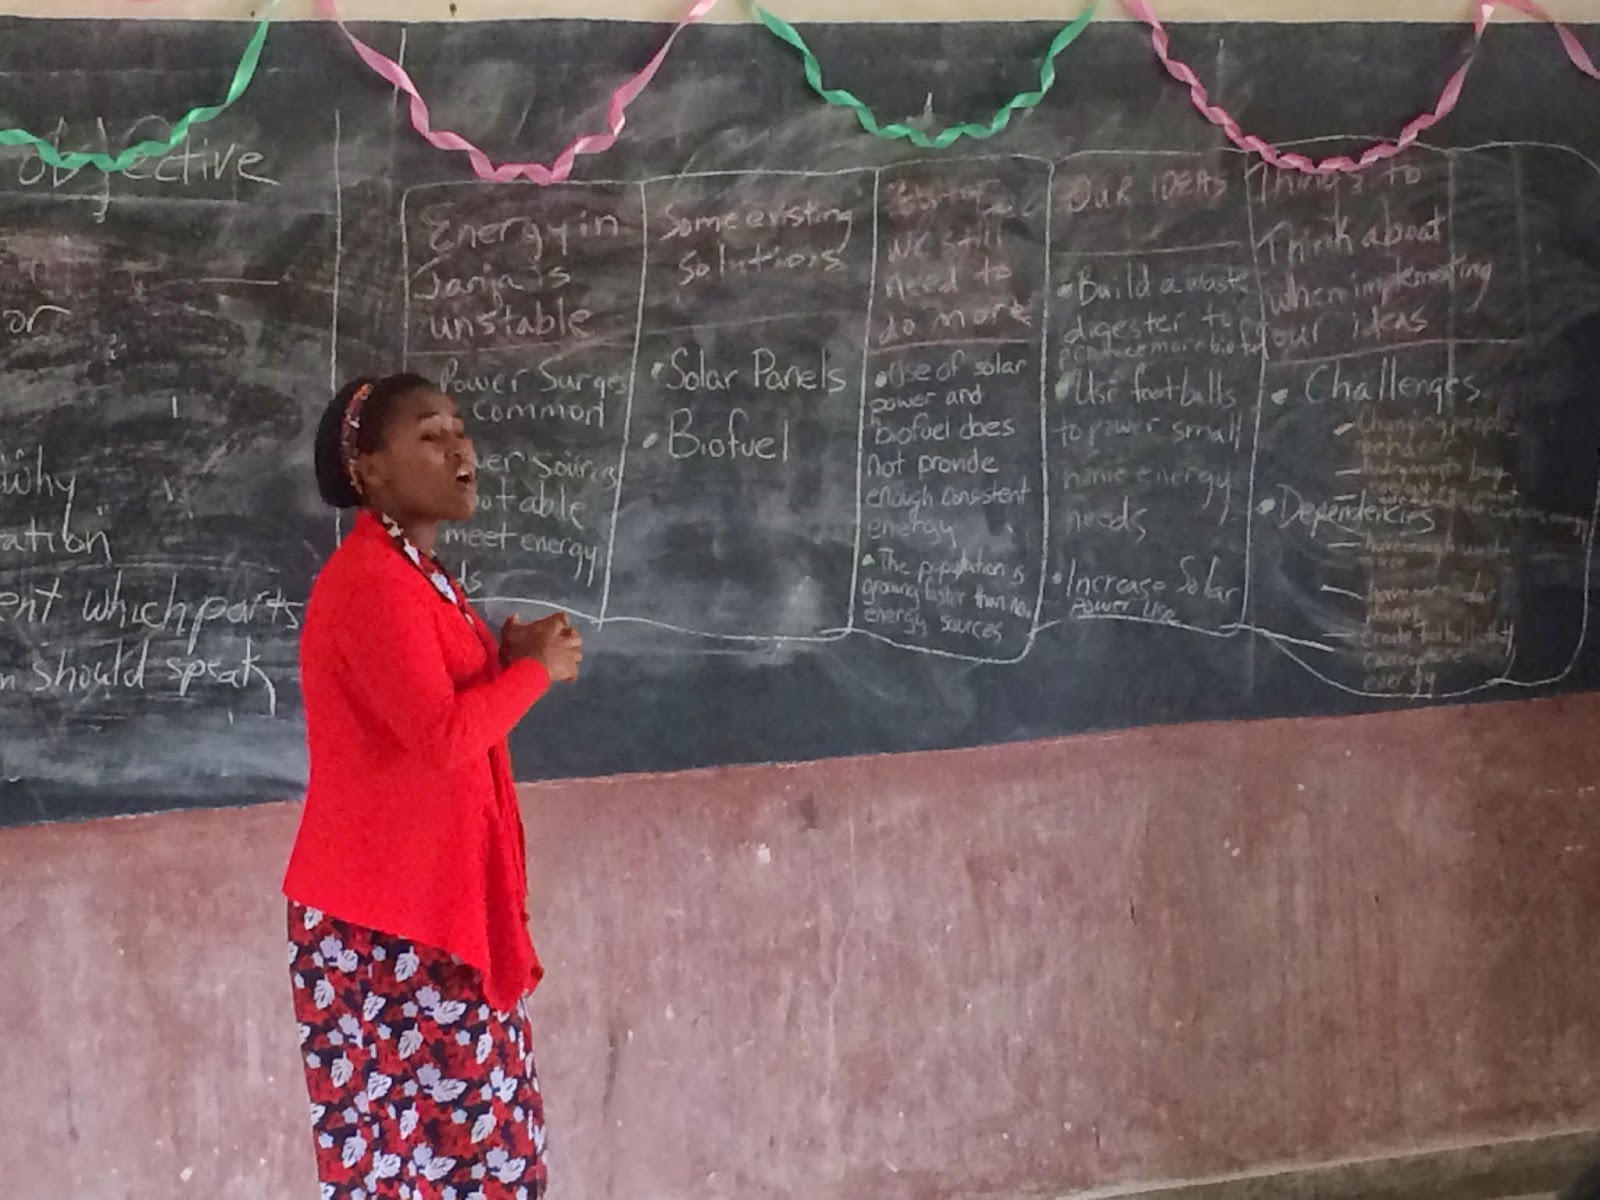 objective
or
why
ation
ent which parts
n should speak
Energy in
Tanja is
unstable
Power Surges
common
wer sources
not able
meet energy
ds
Some existing
Solutions
• Solar Panels
• Biofuel
we still
need to
do more
• Use of solar
power and
biofuel does
not provide
enough consistent
energy
• The population is
growing faster than
energy sources
OUR IDEAS
• Build a waste
digester to
produce more biofuel
• Use footballs
to power small
home energy
needs
• Increase Solar
Power Use
Things to
Think about
when implementing
our ideas
• Challenges
Changing people
• Dependencies
have enough
have more solar
energy